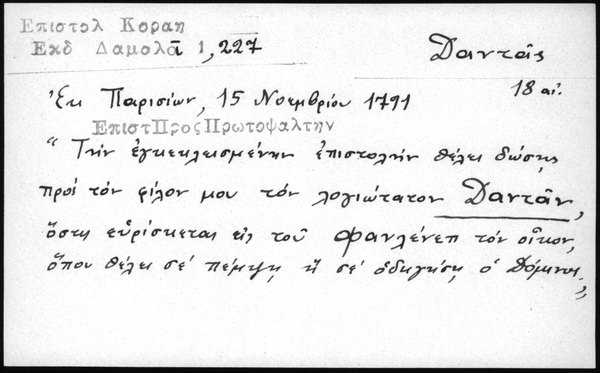 Επιστολ Κοραη
Εκδ Δαμαλᾶ 1, 227
Δαντᾶς
18 αἰ.
Ἐκ Παρισίων, 15 Νοεμβρίου 1791
ΕπιστΠροςΠρωτοψαλτην
“ Τὴν ἐγκεκλεισμένην ἐπιστολὴν θέλει δώσῃς
πρὸς τὸν φίλον μου τὸν λογιώτατον Δαντᾶν,
ὅστις εὑρίσκεται εἰς τοῦ Φανλένεπ τὸν οἶκον,
ὅπου θέλει σὲ πέμψῃ ἢ σὲ ὁδηγήσῃ ὁ Δόμινος.„